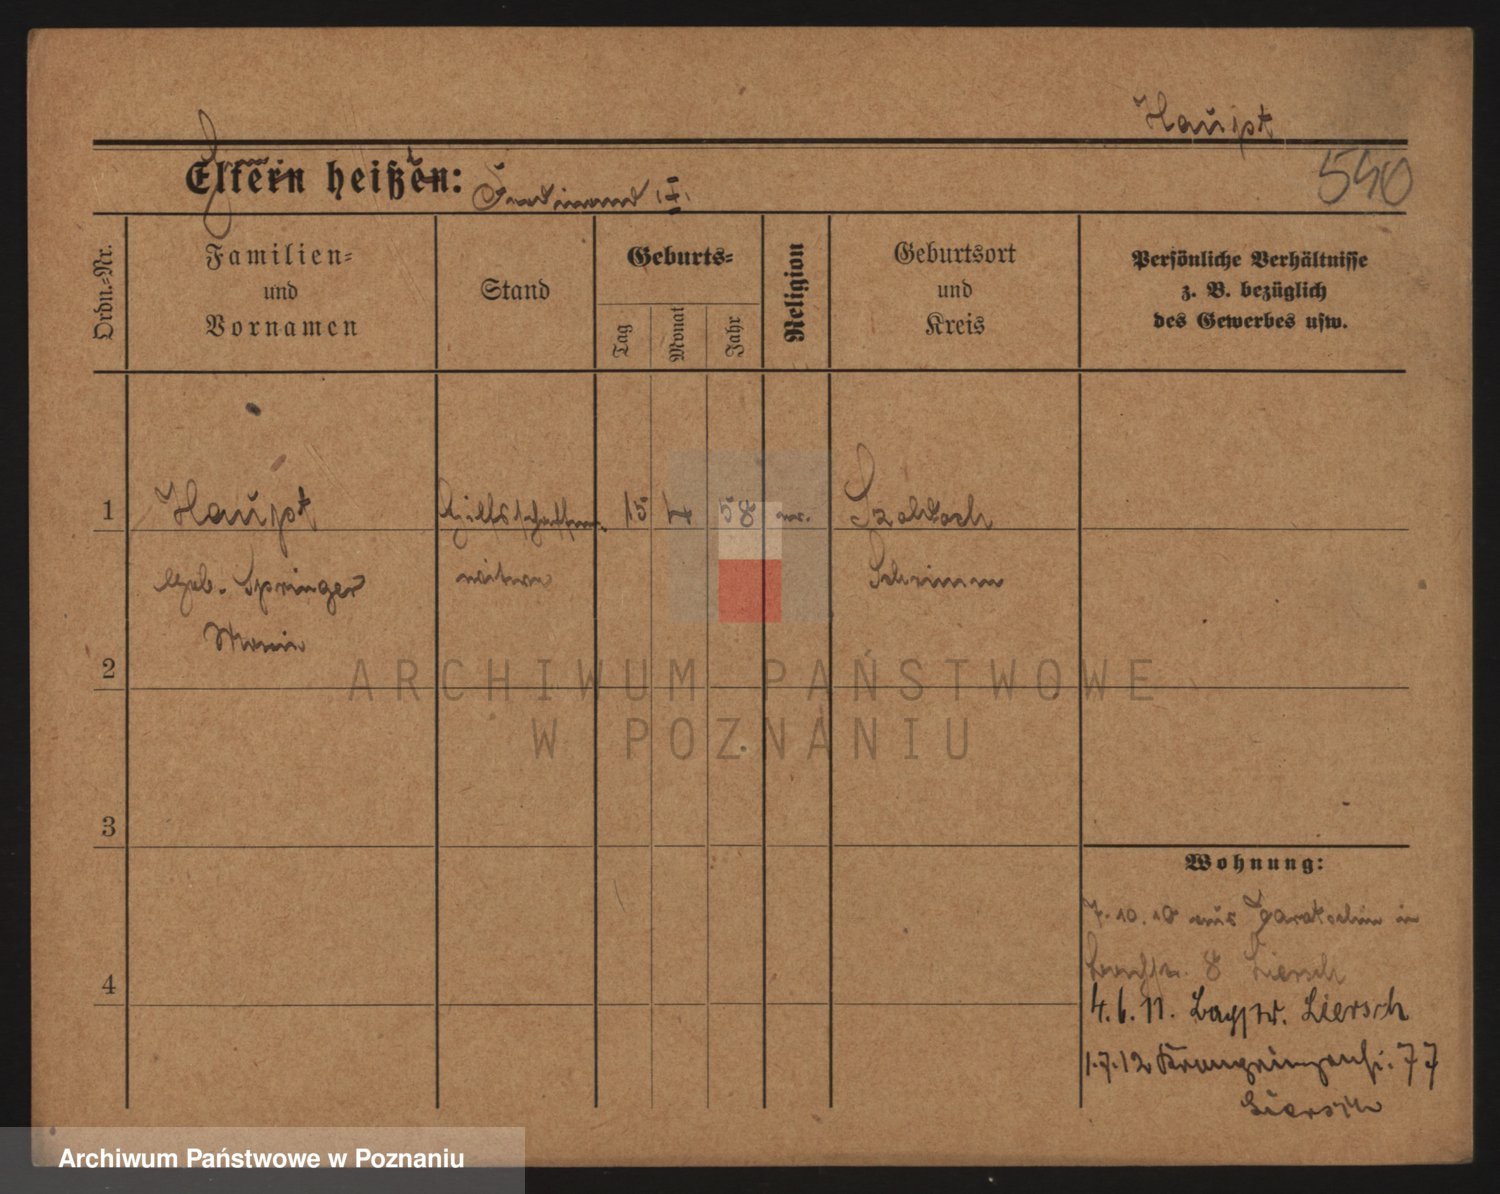 Haupt
Eltern heißen: Ferdinand II.
540
Ordn.=Nr.
Familien=
und
Vornamen
Stand
Geburts=
Tag
Monat
Jahr
Religion
Geburtsort
und
Kreis
Persönliche Verhältnisse
z. B. bezüglich
des Gewerbes usw.
1
Haupt
15
4
58
geb. Springer
witwe
Schrimm
2
3
4
Wohnung:
7.10.10 aus in
8 Liersch
4.6.11. Liersch
1.7.12 Kronprinzenstr. 77
Liersch
ARCHIWUM PAŃSTWOWE
W POZNANIU
Archiwum Państwowe w Poznaniu